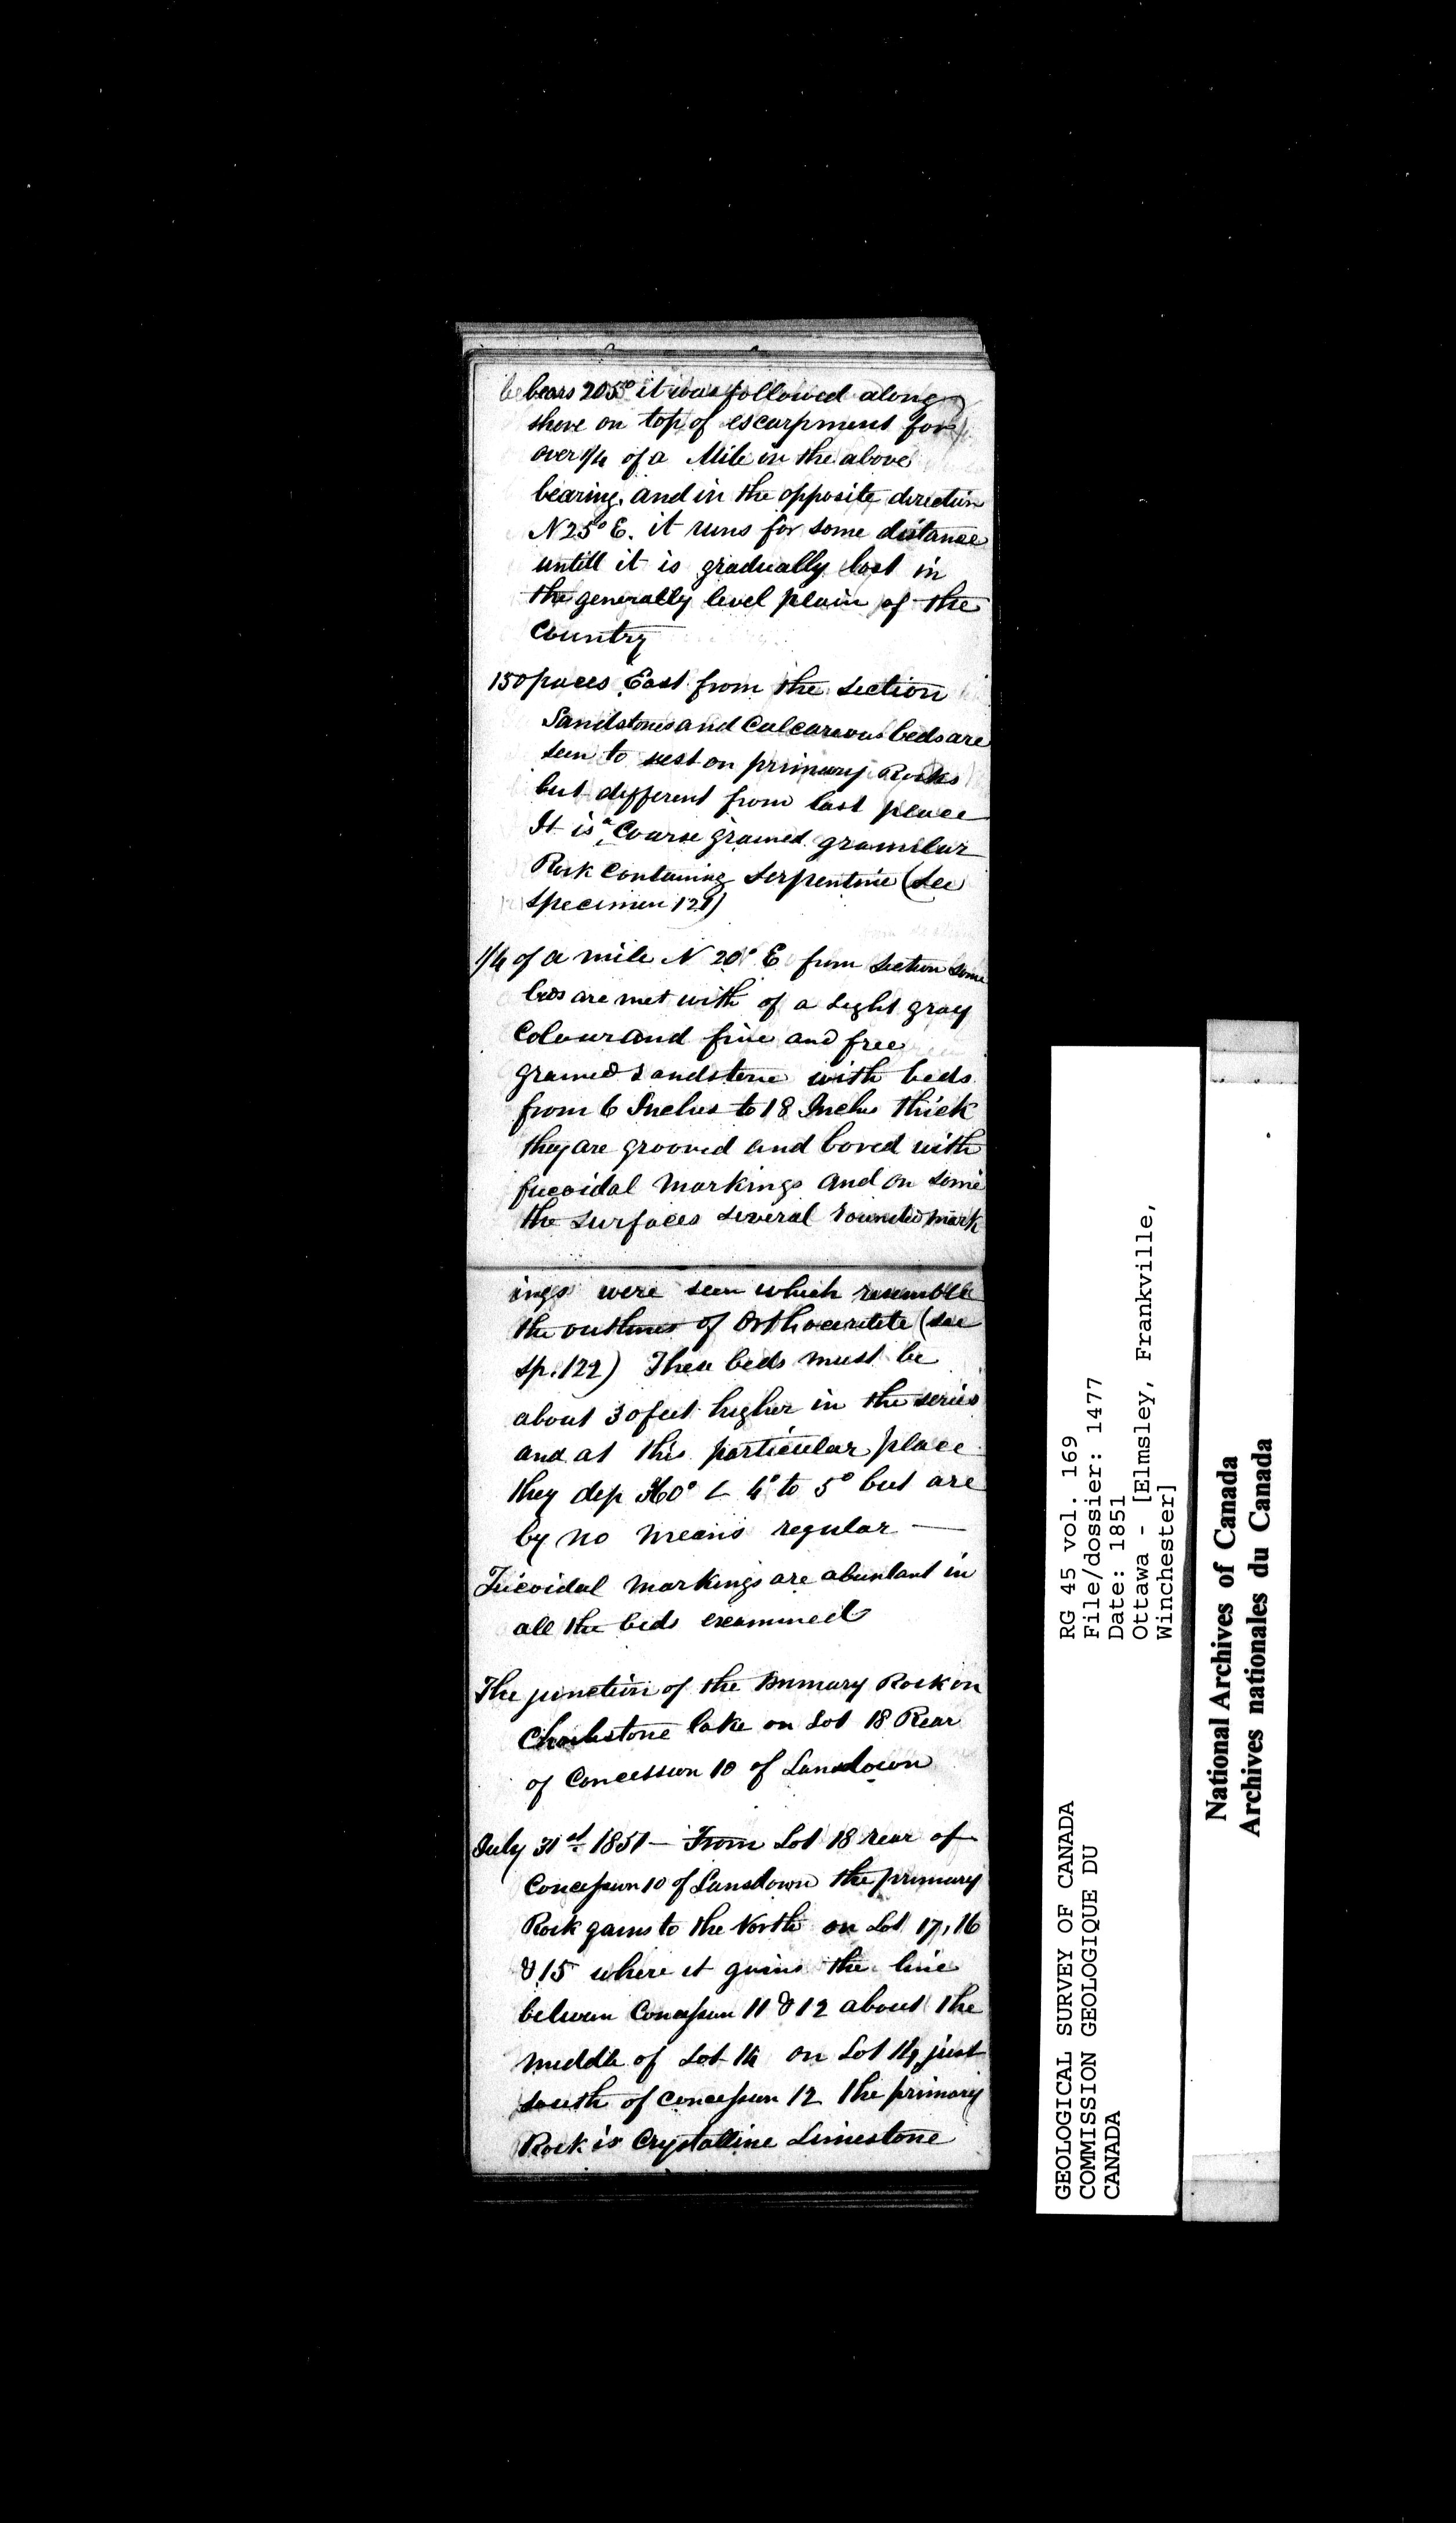 bears 205° it was followed along
shore on top of escarpment for
over 1/4 of a Mile in the above
bearing. and in the opposite direction
N 25° E. it runs for some distance
untill it is gradually lost in
the generally level plain of the
Country
150 paces East from the section
Sandstones and Calcareous beds are
seen to rest on primary Rocks
but different from last place
It is a Coarse grained granular
Rock containing Serpentine (see
specimen 121)
1/4 of a mile N 20° E from section some
beds are met with of a light gray
Colour and fine and free
grained sandstone with beds
from 6 Inches to 18 Inches thick
they are grooved and bored with
fucoidal markings and on some
the surfaces several rounded mark
ings were seen which resemble
the outlines of Orthoceratite (see
sp. 122) These beds must be
about 30 feet higher in the series
and at this particular place
they dep 360° L 4° to 5° but are
by no means regular —
Fucoidal markings are abuntant in
all the beds examined
The junction of the Primary Rock on
lake on Lot 18 Rear
of Concession 10 of Lansdown
July 31st 1851 — From Lot 18 rear of
Concession 10 of Lansdown the primary
Rock gains to the North on Lot 17, 16
& 15 where it gains the line
between Concession 11 & 12 about the
middle of Lot 14 on Lot 14 just
south of concession 12 the primary
Rock is Crystalline Limestone
RG 45 vol. 169
File/dossier: 1477
Date: 1851
Ottawa - [Elmsley, Frankville,
Winchester]
GEOLOGICAL SURVEY OF CANADA
COMMISSION GEOLOGIQUE DU
CANADA
National Archives of Canada
Archives nationales du Canada